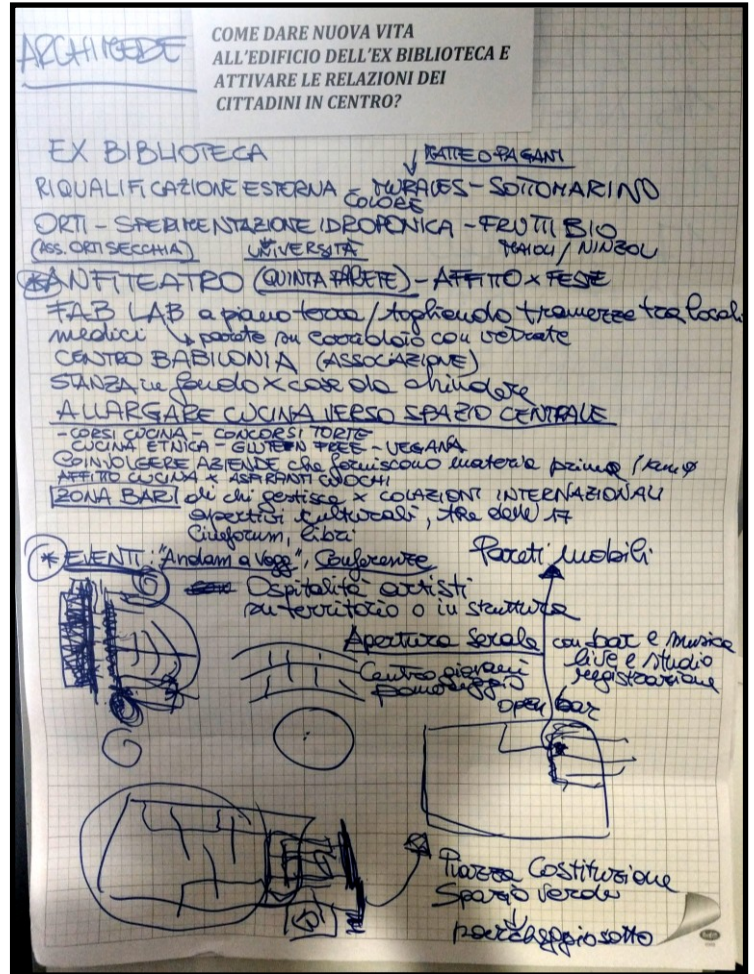 ARCHIMEDE
COME DARE NUOVA VITA
ALL'EDIFICIO DELL'EX BIBLIOTECA E
ATTIVARE LE RELAZIONI DEI
CITTADINI IN CENTRO?
EX BIBLIOTECA
MATTEO PAGANI
RIQUALIFICAZIONE ESTERNA MURALES - SOTTOMARINO
COLORE
ORTI - SPERIMENTAZIONE IDROPONICA - FRUTTI BIO
(ASS. ORTI SECCHIA) UNIVERSITÀ MAIOLI / NINZOLI
* ANFITEATRO (QUINTA PARETE) - AFFITTO x FESTE
FAB LAB a piano terra / togliendo tramezze tra locali
medici parete su corridoio con vetrate
CENTRO BABILONIA (ASSOCIAZIONE)
STANZA in fondo x cose da chiudere
ALLARGARE CUCINA VERSO SPAZIO CENTRALE
- CORSI CUCINA - CONCORSI TORTE
CUCINA ETNICA - GLUTEN FREE - VEGANA
COINVOLGERE AZIENDE che forniscono materia prima / km 0
AFFITTO CUCINA x ASPIRANTI CUOCHI
ZONA BAR di chi gestisce x COLAZIONI INTERNAZIONALI
aperitivi culturali, the delle 17
Cineforum, libri
* EVENTI: "Andam a Vegg", Conferenze
Pareti mobili
Ospitalità artisti
su territorio o in struttura
Apertura Serale con bar e musica
live e studio
registrazione
Centro giovani
pomeriggio
open bar
Piazza Costituzione
Spazio verde
parcheggio sotto